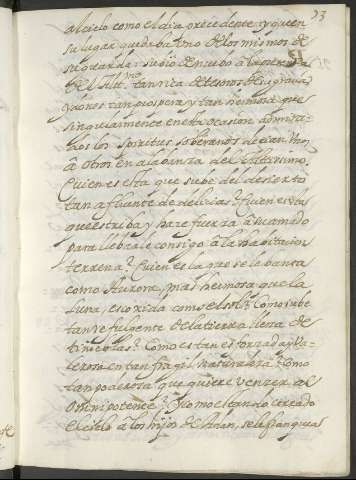 53
al cielo como el dia precedente y quien
su lugar quedaba uno de los mismos de
su guarda: subio de nuevo a la presencia
del Altmo. tan rica de tesoros de su gracia
y dones tan prospera y tan hermosa que
singularmente en esta ocasion admira
dos los spiritus soberanos decian unos
a otros en alabanza del Altisimo.
Quien es esta que sube del desierto
tan afluente de delicias? Quien es esta
que estriba y hace fuerza a su amado
para llebarle consigo a la habitacion
terrena? Quien es la que se lebanta
como Aurora, mas hermosa que la
Luna, escoxida como el sol? Como sube
tan refulgente de la tierra llena de
tinieblas? Como es tan esforzada y va
lerosa en tan fragil naturaleza? Como
tan poderosa que quiere vencer al
Omnipotente? Y como estando cerrado
el cielo a los hijos de Adan, se le franquea